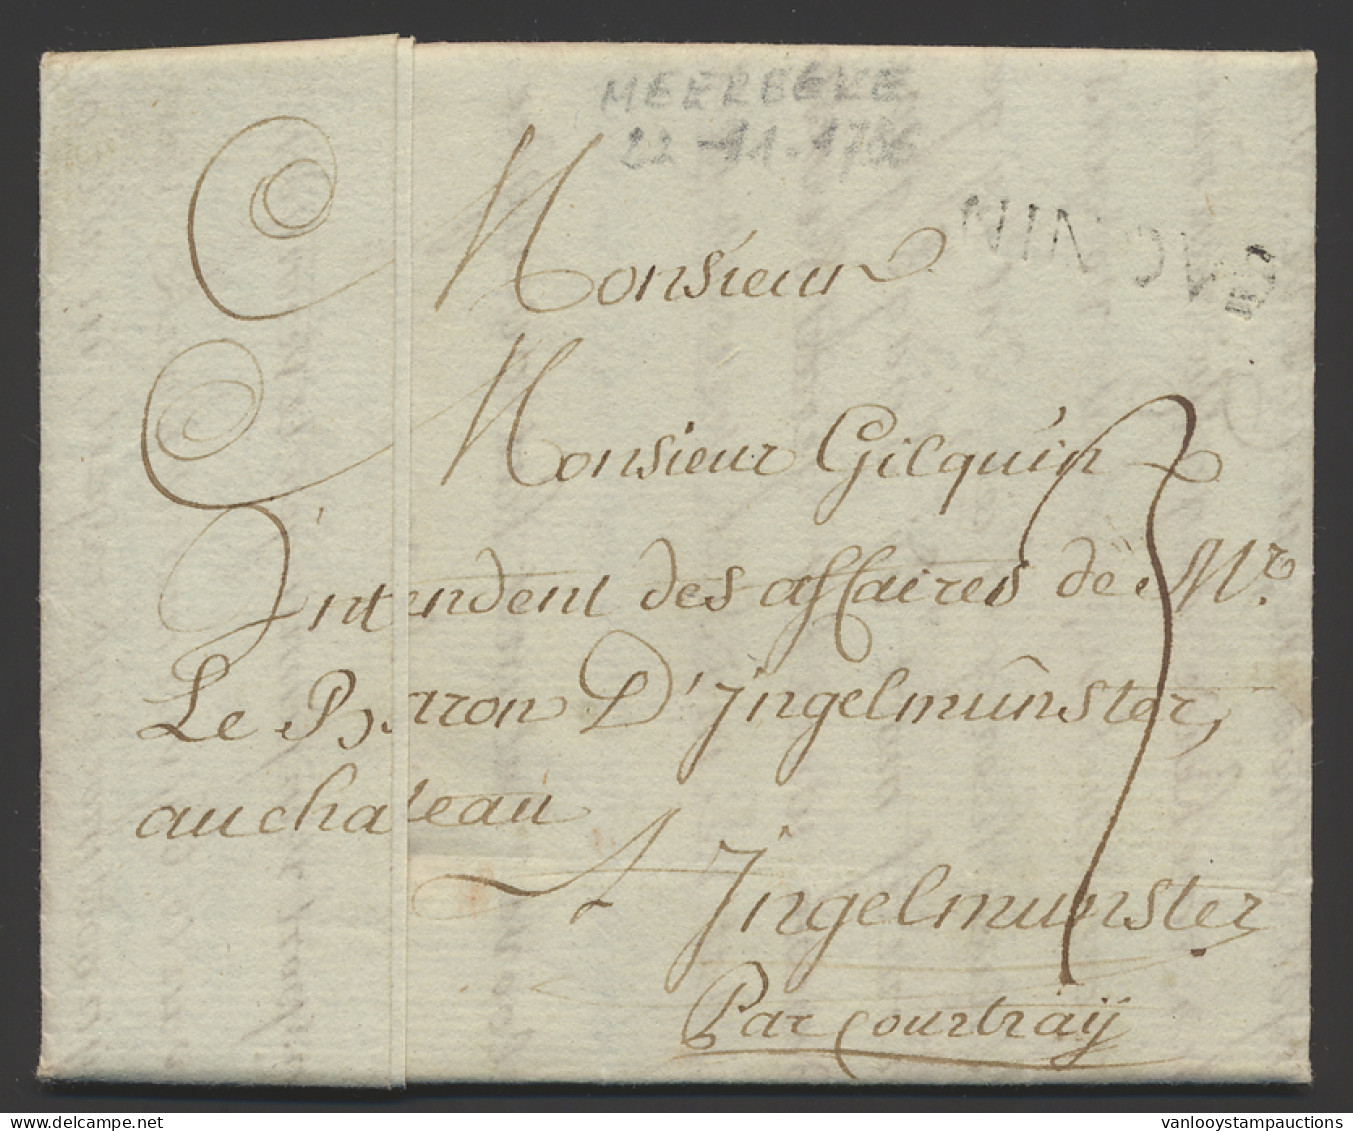 MEERBEKE
22-11-1786
NINOVE
Monsieur
Monsieur Gilquin
Intendent des affaires de Mr.
Le Baron D'Jngelmûnster,
au chateau
A Jngelmunster
Par Courtraÿ
3
© www.delcampe.net
vanlooystampauctions